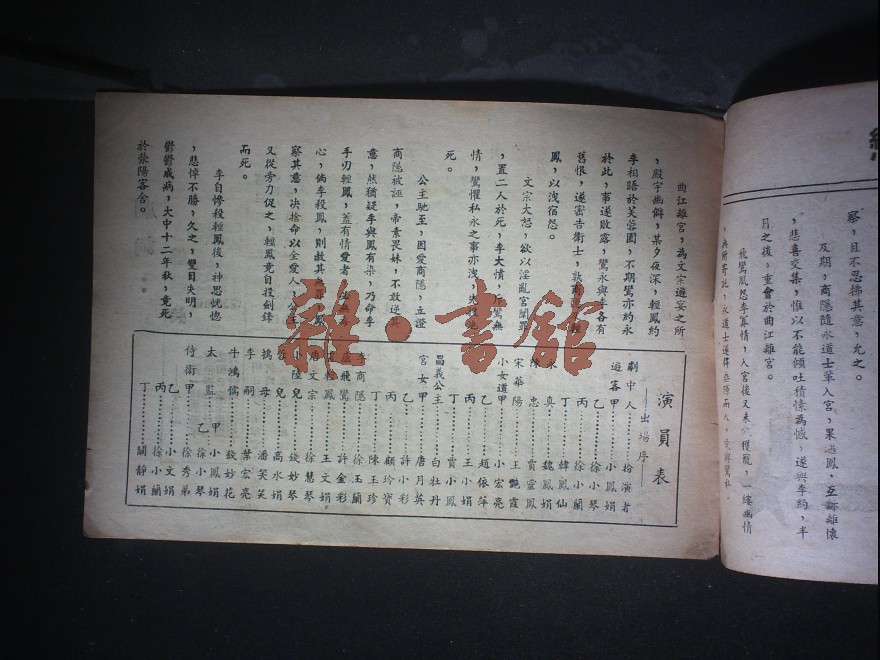 察，且不忍拂其意，允之。
及期，商隱隨永道士輩入宮，果遇鳳，互訴離懷
，悲喜交集，惟以不能傾吐積愫為憾，遂與李約，半
月之後，重會於曲江離宮。
曲江離宮，為文宗遊宴之所
，殿宇幽僻，某夕夜深，輕鳳約
李相晤於芙蓉園，不期鸞亦約永
於此，事遂敗露，鸞永與李各有
舊恨，遂密告衛士，執商隱
鳳，以洩宿怨。
文宗大怒，欲以淫亂宮闈罪
，置二人於死，李大憤，斥鸞無
情，鸞懼私永之事亦洩，
死。
公主馳至，因愛商隱，立證
商隱被誣，帝素畏妹，不敢逆其
意，然猶疑李與鳳有染，乃命李
手刃輕鳳，蓋有情愛者，必無
心，倘李殺鳳，則赦其罪，鳳
察其意，決捨命以全愛人，
又從旁力促之，輕鳳竟自投劍鋒
而死。
李自慘殺輕鳳後，神思恍惚
，悲悼不勝，久之，雙目失明，
鬱鬱成病，大中十二年秋，竟死
於滎陽客舍。
演員表
——出場序——
劇中人……扮演者
遊客甲……小鳳娟
乙……徐小琴
丙……徐小蘭
丁……韓鳳仙
永真……魏鳳娟
陳忠……賈靈鳳
宋華陽……王艷霞
小女道甲……小宏亮
乙……趙依萍
丙……王小娟
丁……賈小鳳
昌義公主……白牡丹
宮女甲……唐月英
乙……許小彩
丙……顧玲寶
丁……陳王珍
李商隱……徐玉蘭
盧飛鸞……許金彩
盧輕鳳……王文娟
唐文宗……徐慧琴
小陸兒……錢妙琴
兒……高水娟
鴇母……潘笑笑
李嗣……葉宏亮
牛鴻儒……錢妙花
太監甲……小鳳娟
乙……徐小琴
侍衛甲……徐秀弟
乙……小文娟
丙……徐小蘭
丁……關靜娟
雜·書館